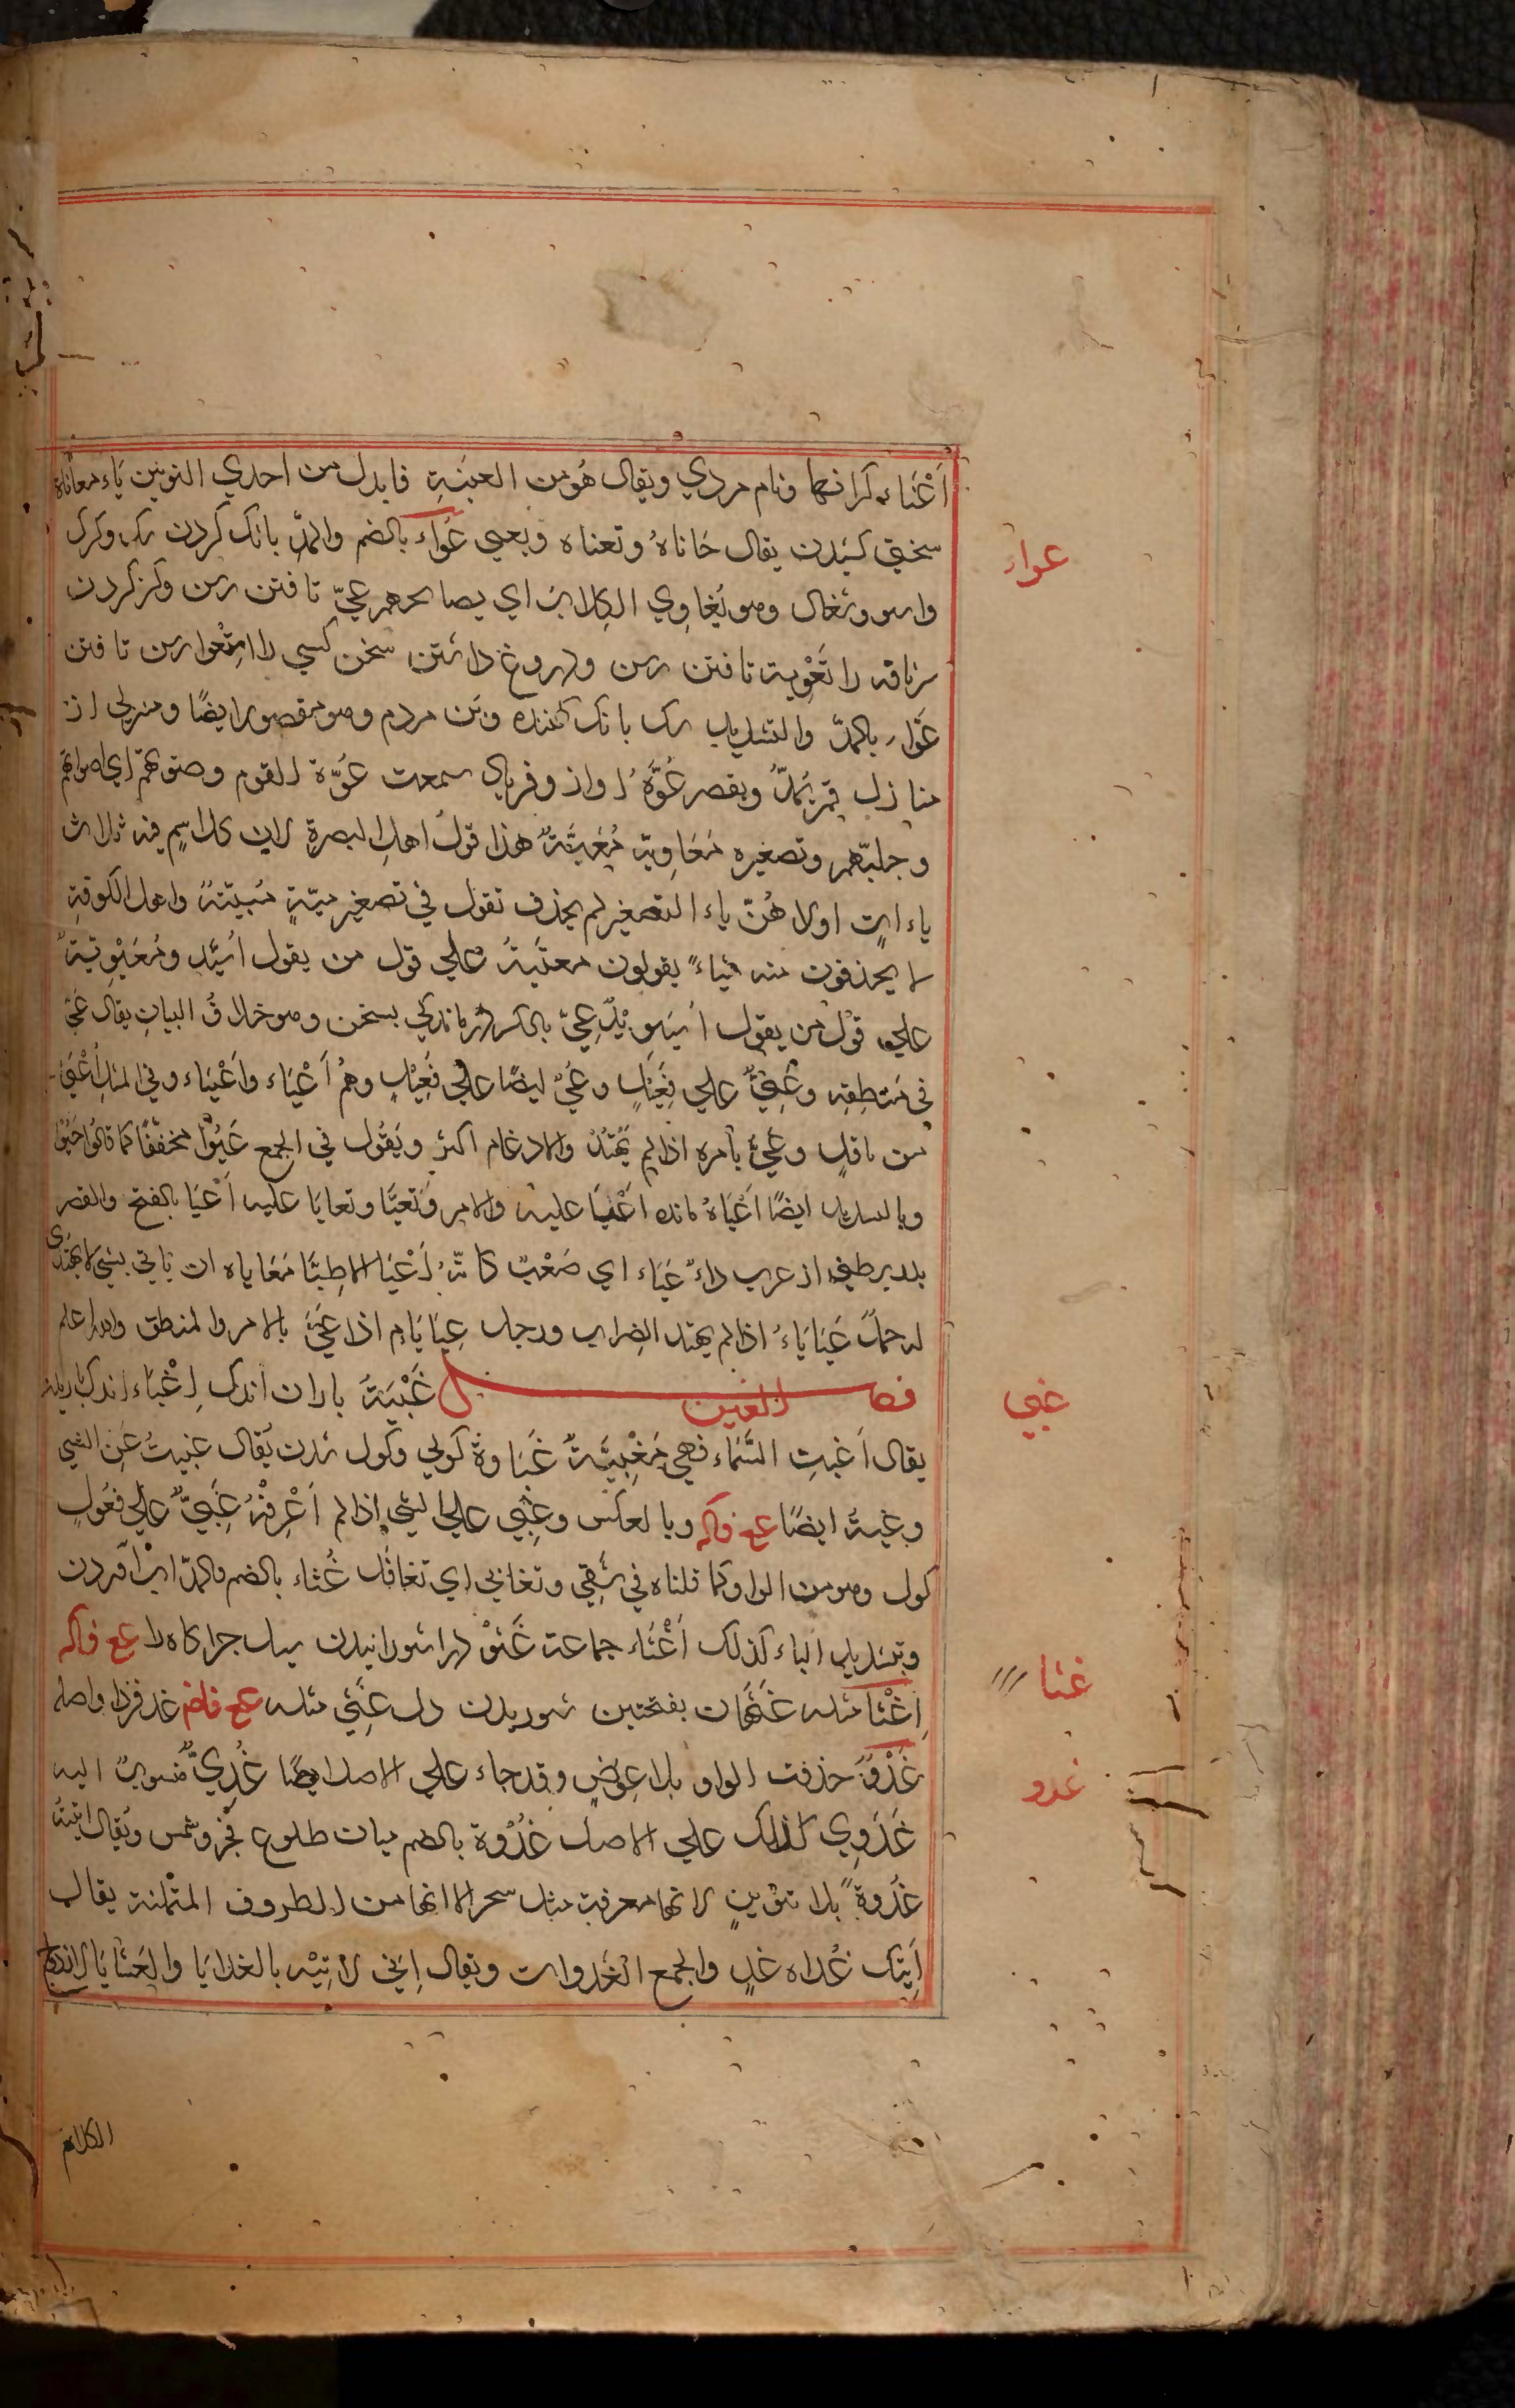 اَعْنَاء کرانها ونام مردي ويقال هُو من العينَةِ فابدل من احدي النونين يَاء معاناة
سختي کشیدن يقال عَاناهُ وتعناه وبعيی عُواء بالضم والمدّ بانک کردن سک وکرک
عواء
واسو وشغال وهو يُعَاوِي الكِلابَ اي يصايحهم عيّ تافتن رسن وکز کردن
سر ناقه را تَعْوِيت تافتن رسن ودروغ داشتن سخن کسي را اِسْتِعْوا رسن تافتن
عَوّاء بالمدّ والتشديد سک بانک کننده وسُن مردم وهو مقصور ايضًا ومنزلي از
منازل قمر يُمَدُّ ويقصر عُوَّهُ اواز وفرياد سمعت عُوّة القوم وضوتهم اي اصواتهم
وجلبتهم وتصغيره مُعَاوية مُعَيَّةٌ هذا قولُ اهلِ البصرةِ لان کل اسمٍ فيه ثلاث
ياءاتٍ اولاهُنّ ياء التصغير لم يحذف تقول في تصغير ميّتةٍ مُييّتةٌ واهل الكوفةِ
لا يحذفون منه شياءً يقولون معيّية علي قول من يقول اُسَيّد ومُعَيْوِيَةٌ
علي قول من يقول اُسَيْوِيْدٌ عِيّ بالكسر درماندکي بسخن وهو خلافُ البيانِ يقال عَيَّ
في مَنطِقِه وعَيِيٌّ علي فَعِيلٍ وعَيٌّ ايضًا علي فَعْلٍ وهُم اَعْيَاء واَعْيِيَاء وفي المثل اَعْيَي
من باقلٍ وعَيَّ بأمره اذا لم يَهْتَد والادغام اکثر ويَقُول في الجمع عَيُوْا مخففًا کما قالُوا حَيُوا
وبالتشديد ايضًا اَعْيَاهُ مانده اَعْيَا عليه والامر وَتعيَّا وتعايَا عليه اَعْيَا بالفتح والقصر
بلدير طي از عرب داءٌ عَيَاء اي صَعْبٌ كانّهُ اَعْيَا الاطِبَّا مُعَاياه ان ياتي بشئ لا يهتدي
له جملٌ عَيَايَاءُ اذا لم يهتد الضراب ورجل عِيَايَاء اذا عَيَّ بالامر والمنطق والله اعلم
فصل الغين غَبْيَةٌ باران اندک اِغْبَاء اندک باريدن
غبي
يقال اَغبتِ السَّمَاء فهي مُغْبِيَّةٌ غَبَاوة کولي وکول شدن يُقال غبيتُ عَنِ الشي
وغبيهٌ ايضًا عع فاله وبالعکس وغَبِي علي الشي اذا لم اَعْرِفْهُ غَبِيٌّ علي فعُولٍ
کول وهو من الواو کما قلناه في شَقِيّ وتغابي اي تغافَل غُثاء بالضم والمدّ اب آوردن
وبتشديد الثاء کذلک اَغْثَاء جماعة غَثْوٌ دراشورانيدن سيل چراکاه را عع فاله
غثا
اِغْثَا مثله غَثَيَان بفتحتين شوريدن دل غَثْي مثله عع فاض غد فردا واصله
غَدْوٌ حذفت الواو بلا عِوَضٍ وقد جاء علي الاصل ايضًا غَدِيٌّ منسوبٌ اليه
غدو
غَدَوِي کذلک علي الاصل غُدْوة بالضم ميان طلوع فجر وشمس ويُقال اتيتُهُ
غُدْوةً بلا تنوينٍ لانها معرفة مثل سحر الا انها من الظروف المتمكنة يقال
آتِيک غَداه غدٍ والجمع الغَدوات ويقال اِنّي لآتِيْه بالغدايَا والعَشَايَا لازدواج
الكلام